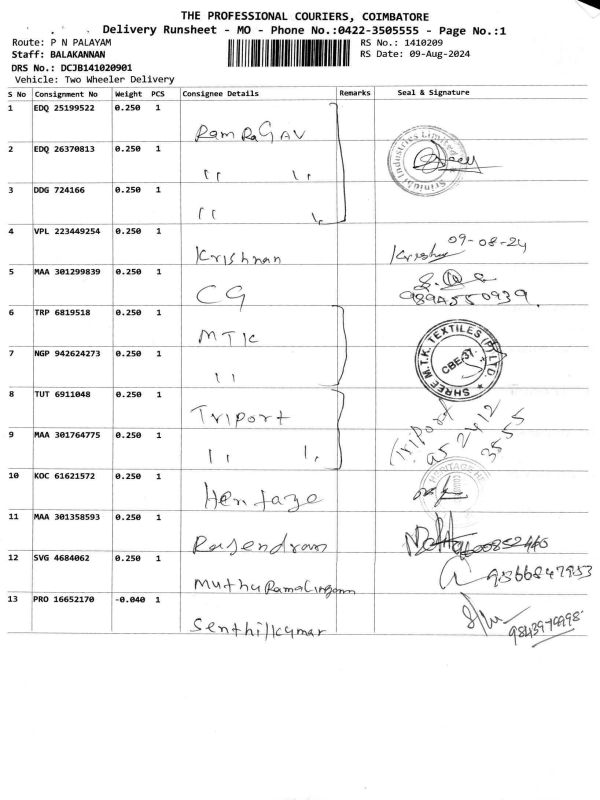 THE PROFESSIONAL COURIERS, COIMBATORE
Delivery Runsheet - MO - Phone No.:0422-3505555 - Page No.:1
Route: P N PALAYAM RS No.: 1410209
Staff: BALAKANNAN RS Date: 09-Aug-2024
DRS No.: DCJB141020901
Vehicle: Two Wheeler Delivery
S No Consignment No Weight PCS Consignee Details Remarks Seal & Signature
1 EDQ 25199522 0.250 1
RamRaGAV
2 EDQ 26370813 0.250 1
Industries Limited
" "
3 DDG 724166 0.250 1
" "
4 VPL 223449254 0.250 1
Krishnan Krishn 09-08-24
5 MAA 301299839 0.250 1
CG 9894550939.
6 TRP 6819518 0.250 1
MTK
SHREE M.T.K. TEXTILES (P) LTD.
CBE-37.
7 NGP 942624273 0.250 1
" "
8 TUT 6911048 0.250 1
Triport Triport
9 MAA 301764775 0.250 1
" " 95 2412
3555
10 KOC 61621572 0.250 1
Heritage
11 MAA 301358593 0.250 1
Rajendran
12 SVG 4684062 0.250 1
MuthuRamalingam 9566847953
13 PRO 16652170 -0.040 1
Senthilkumar